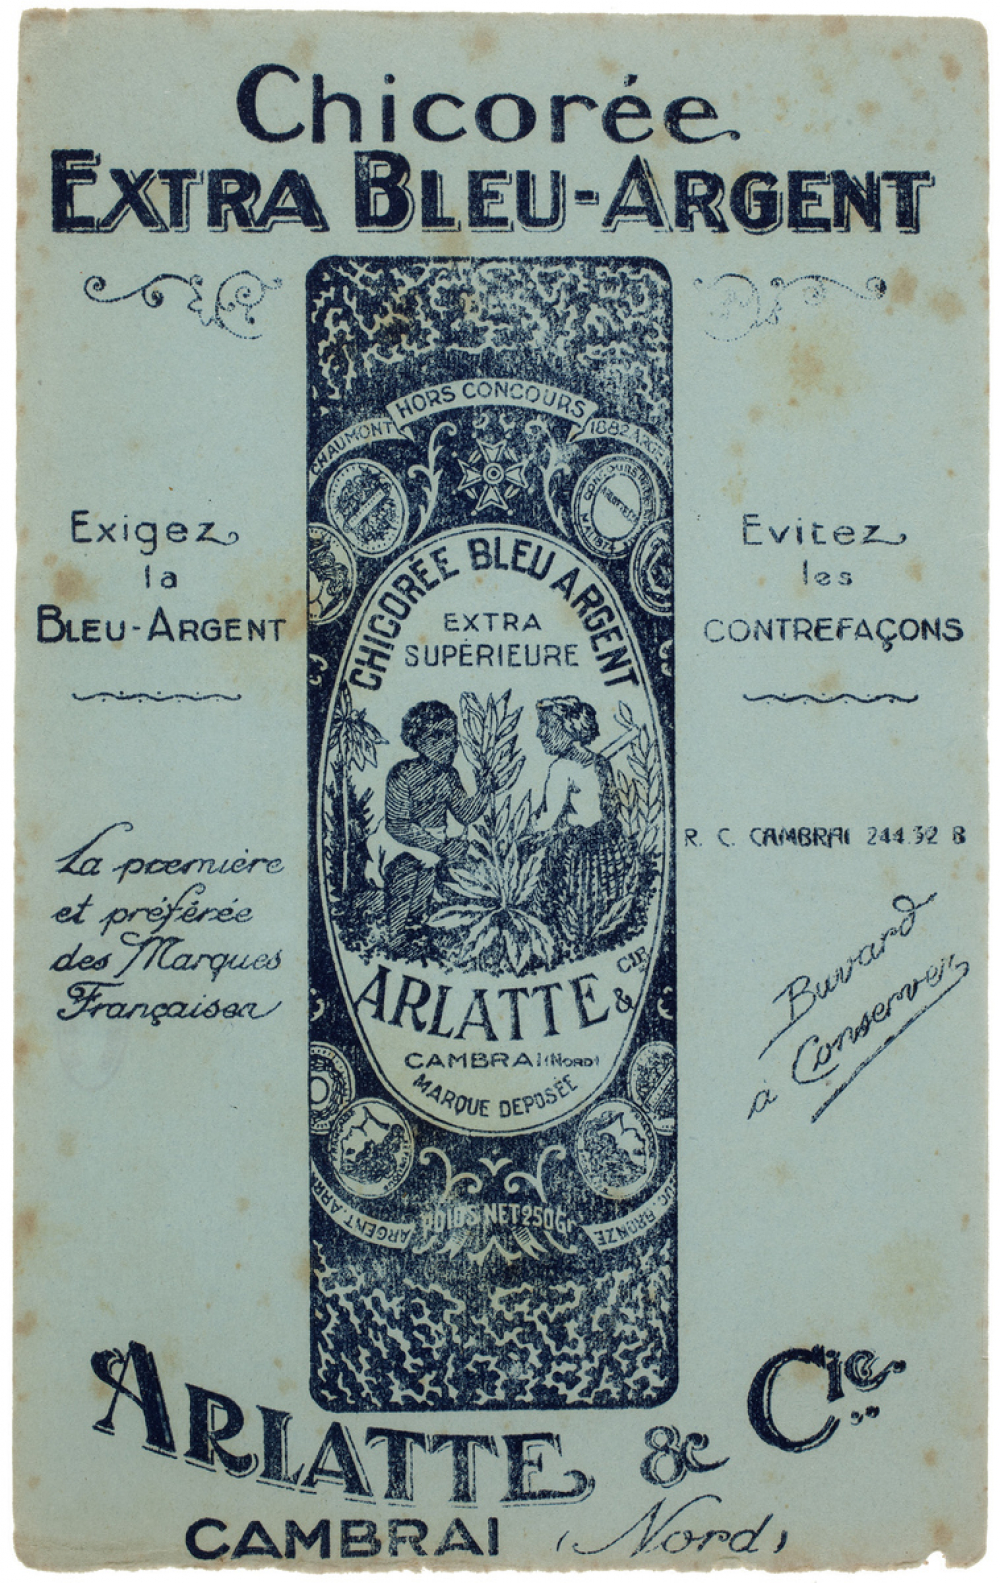 Chicorée
EXTRA BLEU-ARGENT
HORS CONCOURS
CHAUMONT
1882
CHICORÉE BLEU ARGENT
EXTRA
SUPÉRIEURE
Exigez
la
BLEU-ARGENT
Evitez
les
CONTREFAÇONS
La première
et préférée
des Marques
Françaises
R. C. CAMBRAI 244.52 B
Buvard
à Conserver
ARLATTE & CIE
CAMBRAI (NORD)
MARQUE DEPOSÉE
POIDS NET 250Gr
ARGENT
BRONZE
ARLATTE & Cie
CAMBRAI (Nord)